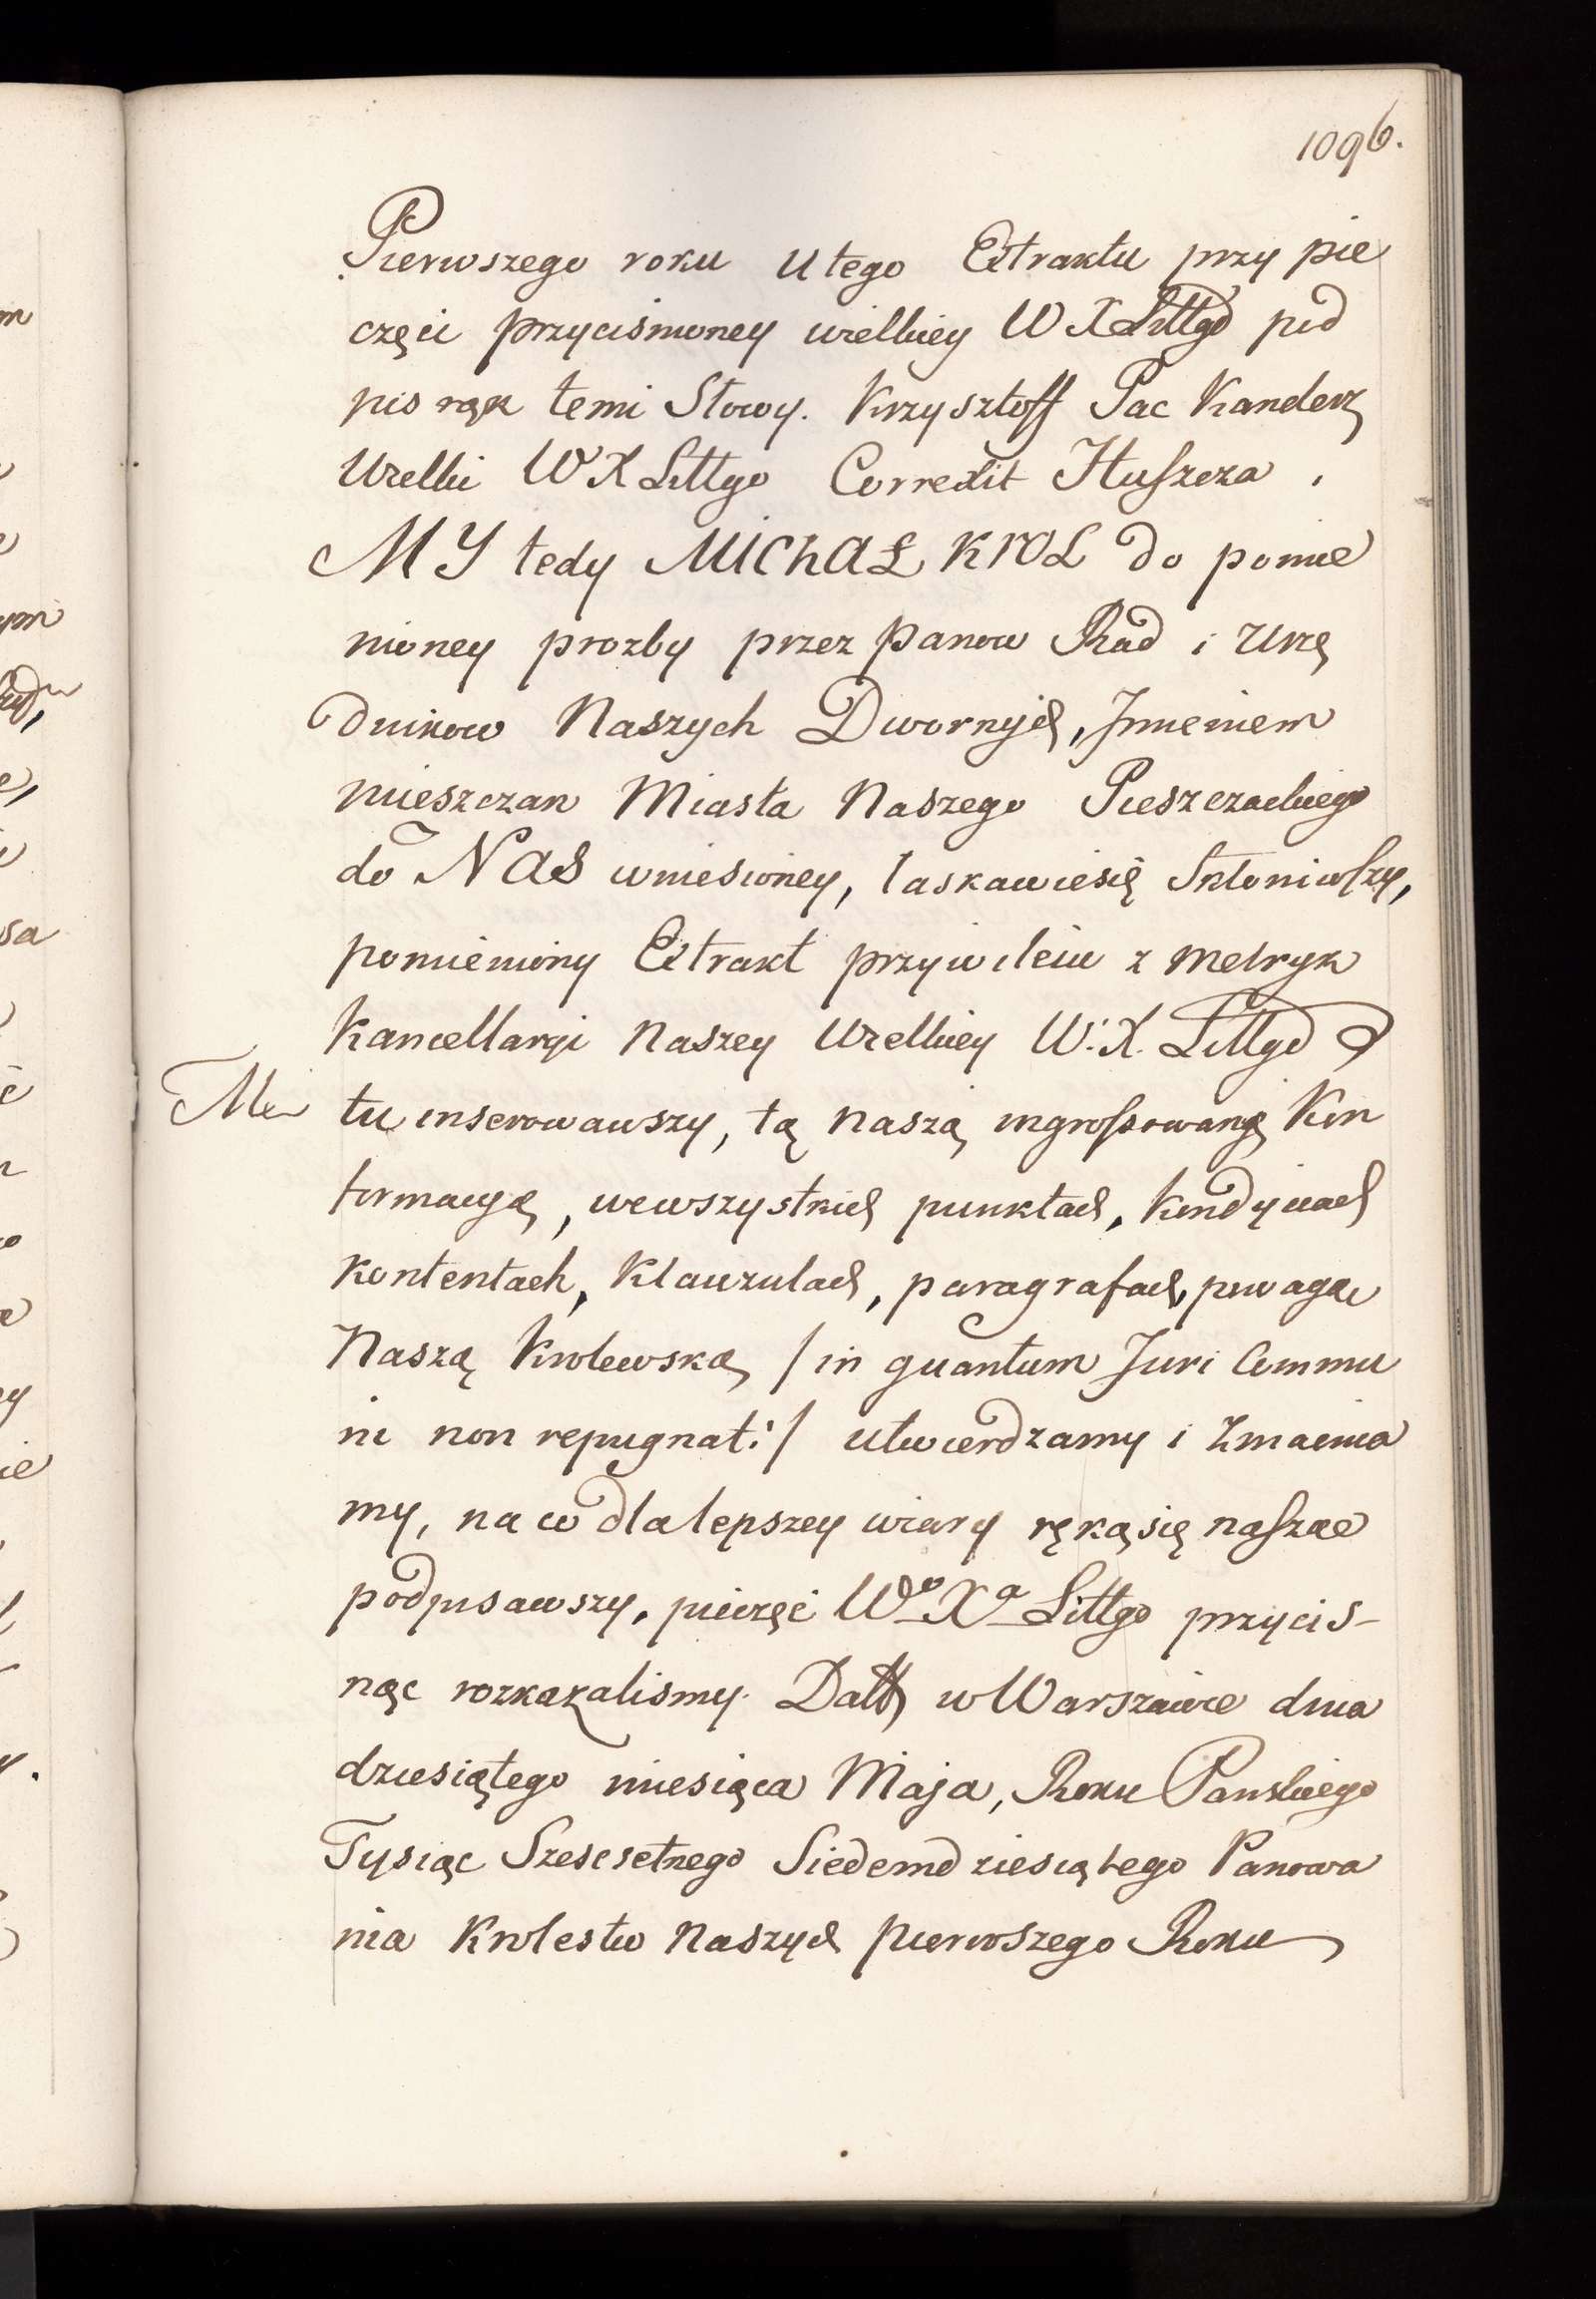 1096.
Pierwszego roku U tego Extraktu przy pie
częci przycisnioney wielkiey W X Littgo pod
pis rąk temi Słowy. Krzysztoff Pac Kanclerz
Wielki W X Littgo Correxit Huszcza.
MY tedy MIChAŁ KrOL do pomie
nioney prozby przez Panow Rad i Urzę
dnikow Naszych Dwornych, Jmieniem
mieszczan Miasta Naszego Pieszczackiego
do NAS wniesioney, łaskawiesię Skłoniwszy,
pomieniony Extrakt przywileiu z Metryk
Kancellaryi Naszey Wielkiey W. X. Littgo
tu inserowawszy, tą naszą ingrossowaną Kon
formacyą, wewszystkich punktach, kondyciach
kontentach, Klauzulach, paragrafach, powagą
Naszą Krolewską /in quantum Juri Commu
ni non repugnat:/ utwierdzamy i zmacnia
my, na co dla lepszey wiary ręką się naszą
podpisawszy, pieczęć Wo Xa Littgo przycis-
nąc rozkazalismy. Datt w Warszawie dnia
dziesiątego miesiąca Maja, Roku Panskiego
Tysiąc Szescsetnego Siedemdziesiątego Panowa
nia Krolestw Naszych pierwszego Roku